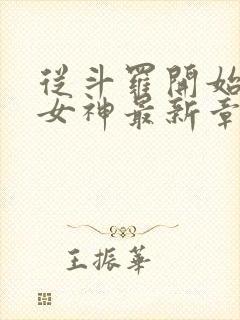 從斗羅開始
女神最新章
王振華